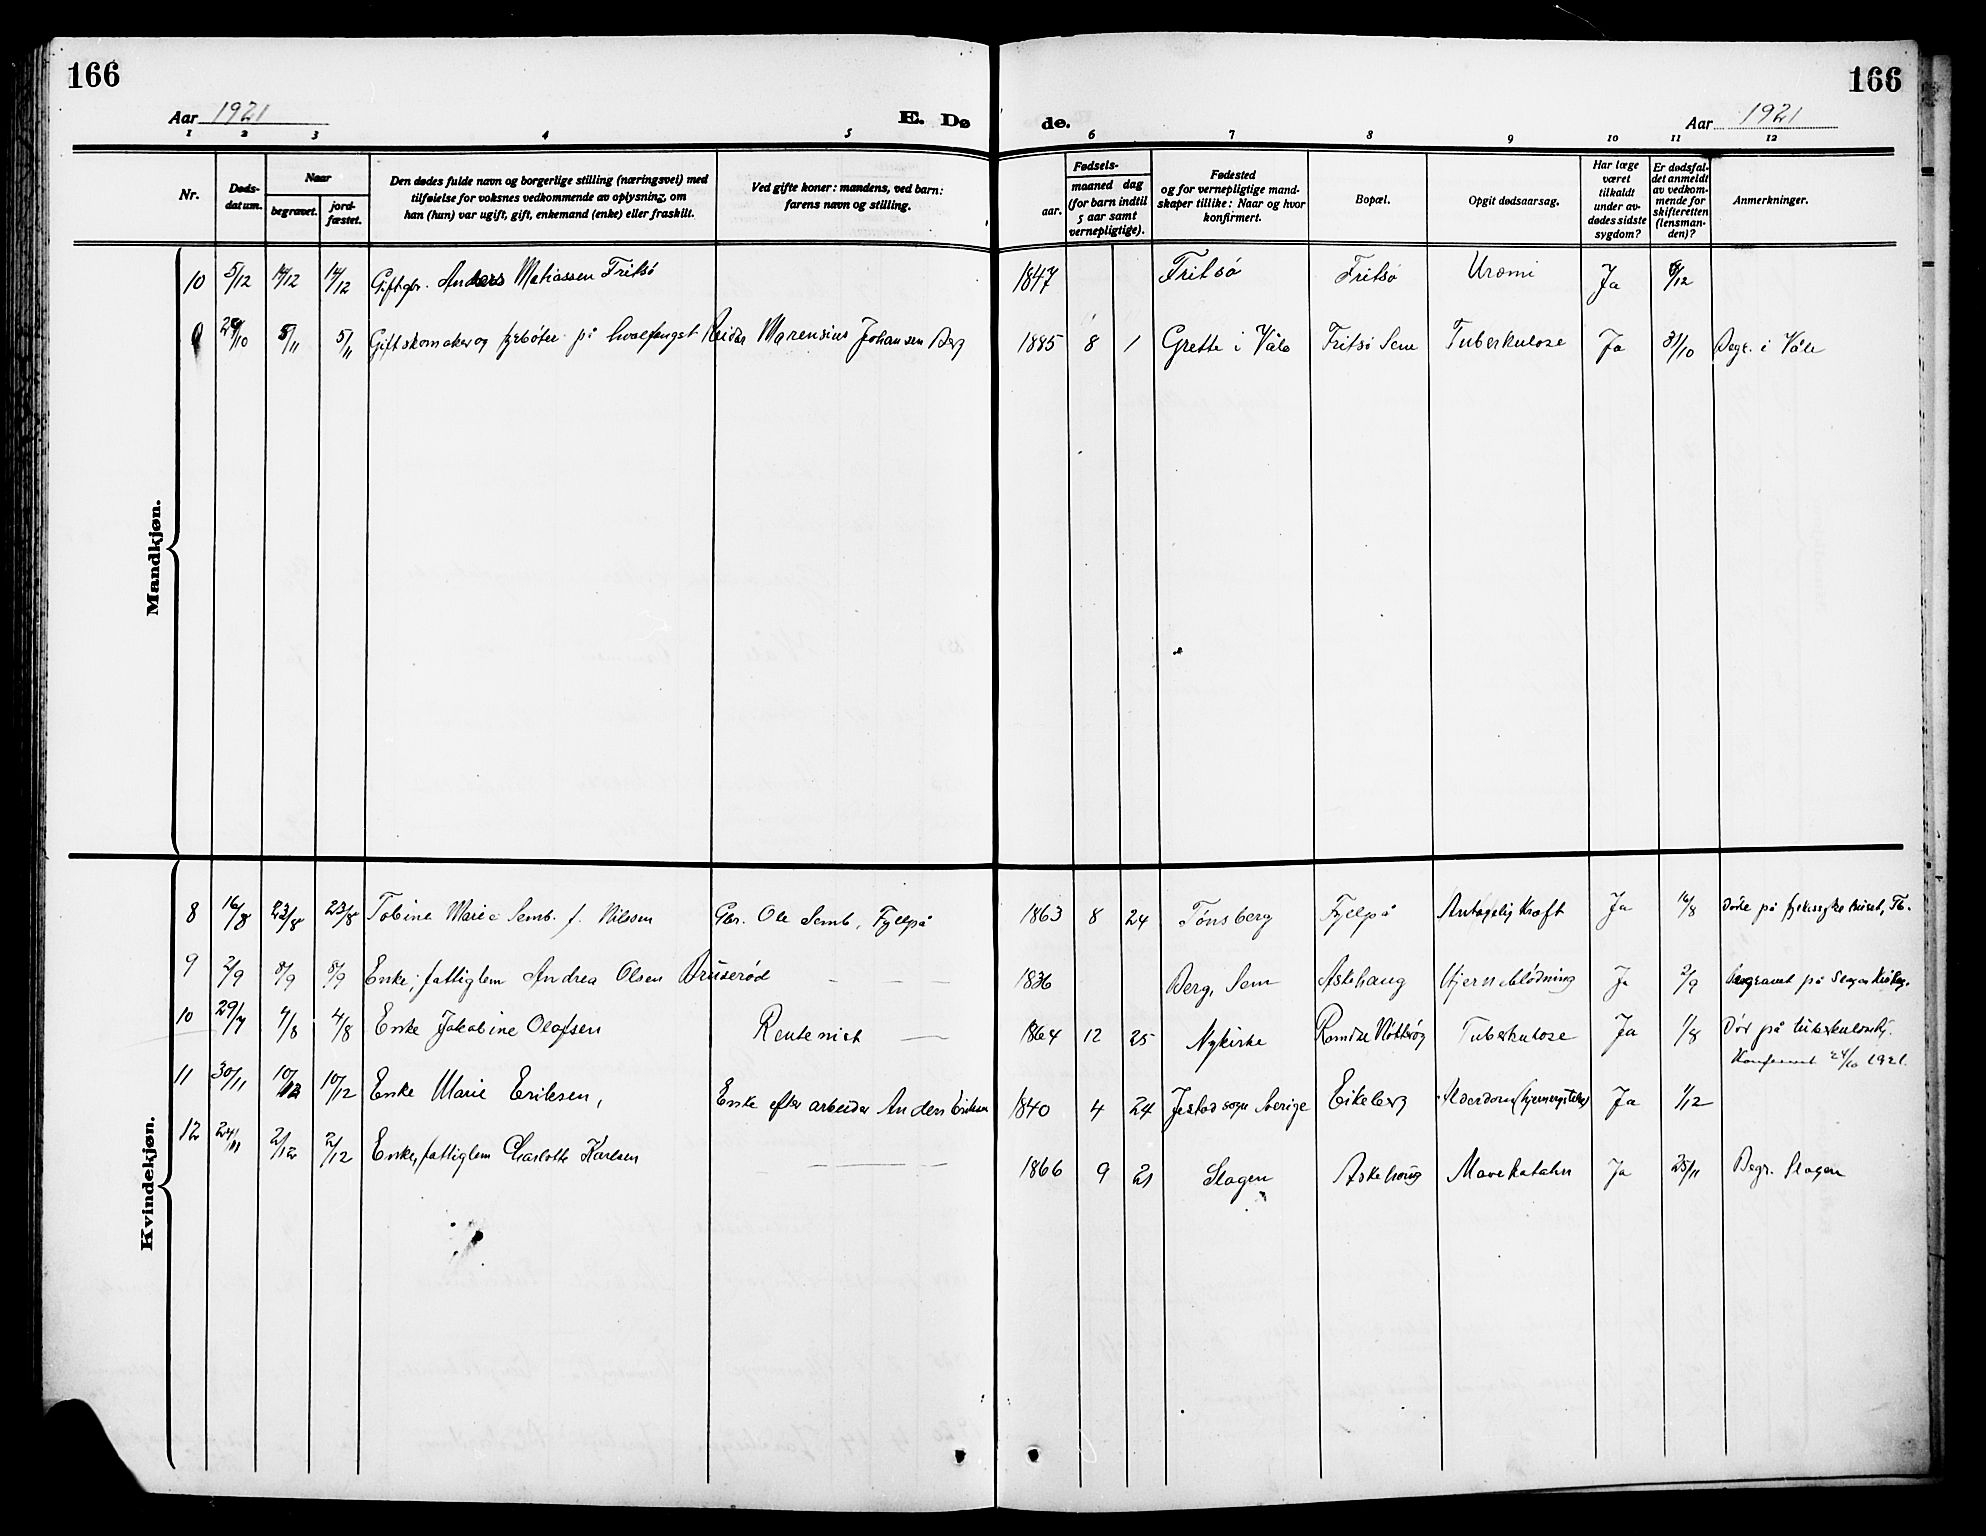 166
166
Aar 1921
E. Dø
de.
Aar 1921
1 2 3 4 5 6 7 8 9 10 11 12
Nr.
Døds-
datum.
Naar
begravet.
jord-
fæstet.
Den dødes fulde navn og borgerlige stilling (næringsvei) med
tilføielse for voksnes vedkommende av oplysning, om
han (hun) var ugift, gift, enkemand (enke) eller fraskilt.
Ved gifte koner: mandens, ved barn:
farens navn og stilling.
Fødsels-
aar.
maaned dag
(for barn indtil
5 aar samt
vernepligtige).
Fødested
og for vernepligtige mand-
skaper tillike: Naar og hvor
konfirmert.
Bopæl.
Opgit dødsaarsag.
Har læge
været
tilkaldt
under av-
dødes sidste
sygdom?
Er dødsfal-
det anmeldt
av vedkom-
mende for
skifteretten
(lensman-
den)?
Anmerkninger.
Mandkjøn.
10 5/12 14/12 14/12 Gift gbr. Anders Matiassen Fritsø 1847 Fritsø Fritsø Uræmi Ja /12
9 29/10 5/11 5/11 Gift skomaker og fyrbøter på hvalfangst Reidar Marensius Johansen Berg 1885 8 1 Grette i Våle Fritsø Sem Tuberkulose Ja 31/10 Begr. i Våle
Kvindekjøn.
8 16/8 23/8 23/8 Tobine Marie Semb. f. Nilsen Gbr. Ole Semb, Fyllpå 1863 8 24 Tønsberg Fyllpå Antagelig Kræft Ja 16/8 Døde på fylkessykehuset, Tb.
9 2/9 8/9 8/9 Enke, fattiglem Andrea Olsen Bruserød — — — 1836 Berg, Sem Askehaug Hjerneblødning Ja 2/9 Begravet på Slagen Kirkeg.
10 29/7 4/8 4/8 Enke Jakobine Olafsen Rentenist — 1864 12 25 Nykirke Nøtterøy Tuberkulose Ja 1/8 Død på tuberkulosehj.
24/10 1921.
11 30/11 10/12 10/12 Enke Marie Eriksen, Enke efter arbeider Anders Eriksen 1840 4 24 sogn Sverige Eikeberg Alderdom Ja 1/12
12 24/11 2/12 2/12 Enke, fattiglem Charlotte Karlsen — — — — 1866 9 21 Slagen Askehaug Mavekatahr Ja 25/11 Begr. Slagen